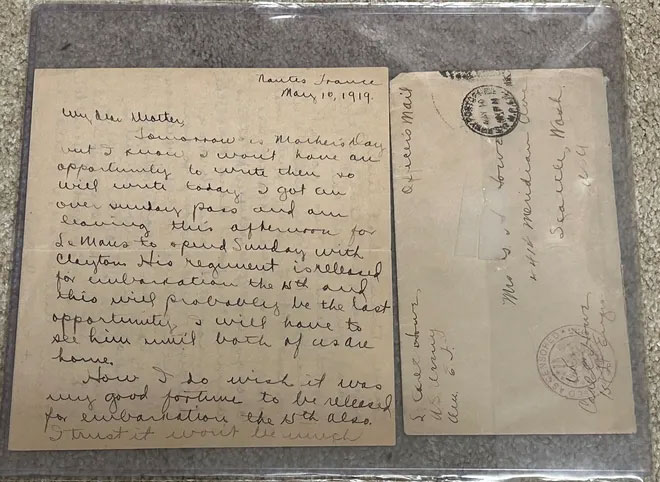 Nantes France
May 10, 1919.
My dear Mother,
Tomorrow is Mother's Day
but I know I won't have an
opportunity to write then so
will write today. I got an
over sunday pass and am
leaving this afternoon for
Le Mans to spend Sunday with
Clayton. His regiment is released
for embarkation the 15th and
this will probably be the last
opportunity I will have to
see him until both of us are
home.
How I do wish it was
my good fortune to be released
for embarkation the 15th also.
I trust it wont be much
Officers Mail
Mrs
Meridian Ave
Seattle, Wash.
U.S.A
U.S. Army